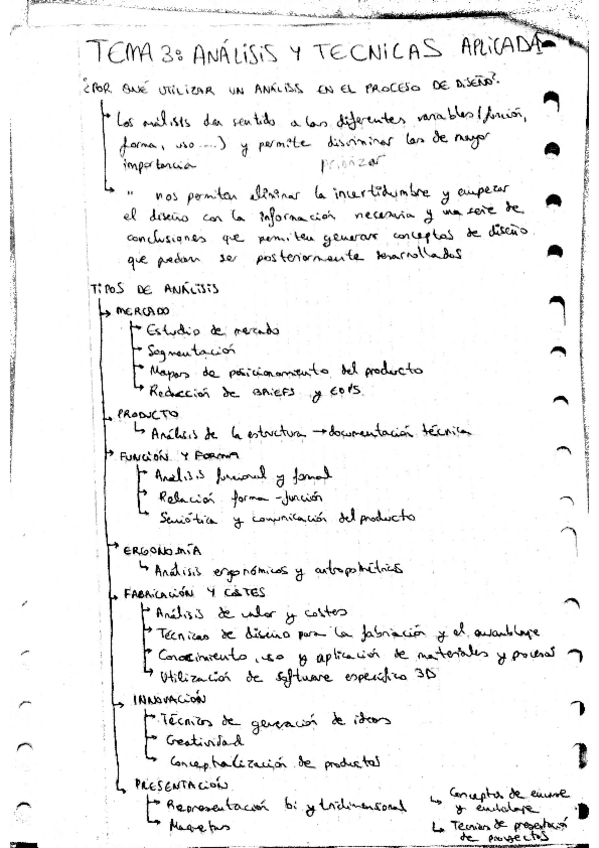 TEMA 3: ANÁLISIS Y TECNICAS APLICADA
¿POR QUÉ UTILIZAR UN ANÁLISIS EN EL PROCESO DE DISEÑO?
Los análisis dan sentido a las diferentes variables (función,
forma, uso ....) y permite discriminar las de mayor
importancia priorizar
" nos permiten eliminar la incertidumbre y empezar
el diseño con la información necesaria y una serie de
conclusiones que permiten generar conceptos de diseño
que puedan ser posteriormente desarrollados
TIPOS DE ANÁLISIS
MERCADO
Estudio de mercado
Segmentación
Mapas de posicionamiento del producto
Redacción de BRIEFS y EDPS
PRODUCTO
Análisis de la estructura → documentación técnica
FUNCIÓN Y FORMA
Análisis funcional y formal
Relación forma - función
Semiótica y comunicación del producto
ERGONOMÍA
Análisis ergonómicos y antropométricos
FABRICACIÓN Y COSTES
Análisis de valor y costes
Técnicas de diseño para la fabricación y el ensamblaje
Conocimiento, uso y aplicación de materiales y procesos
Utilización de software específico 3D
INNOVACIÓN
Técnicas de generación de ideas
Creatividad
Conceptualización de productos
PRESENTACIÓN
Representación bi y tridimensional
Maquetas
Conceptos de envase
y embalaje
Técnicas de presentación
de proyectos